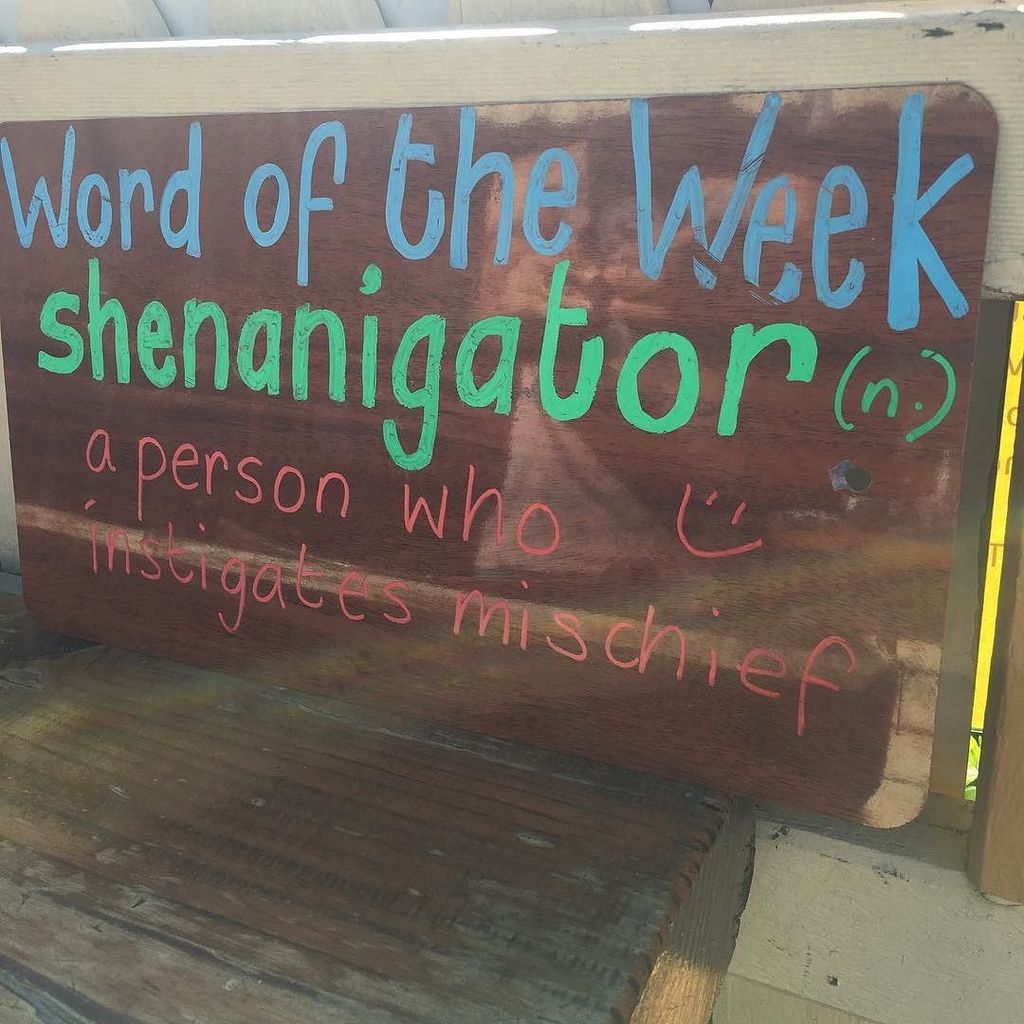 Word of the Week
shenanigator (n.)
a person who
instigates mischief